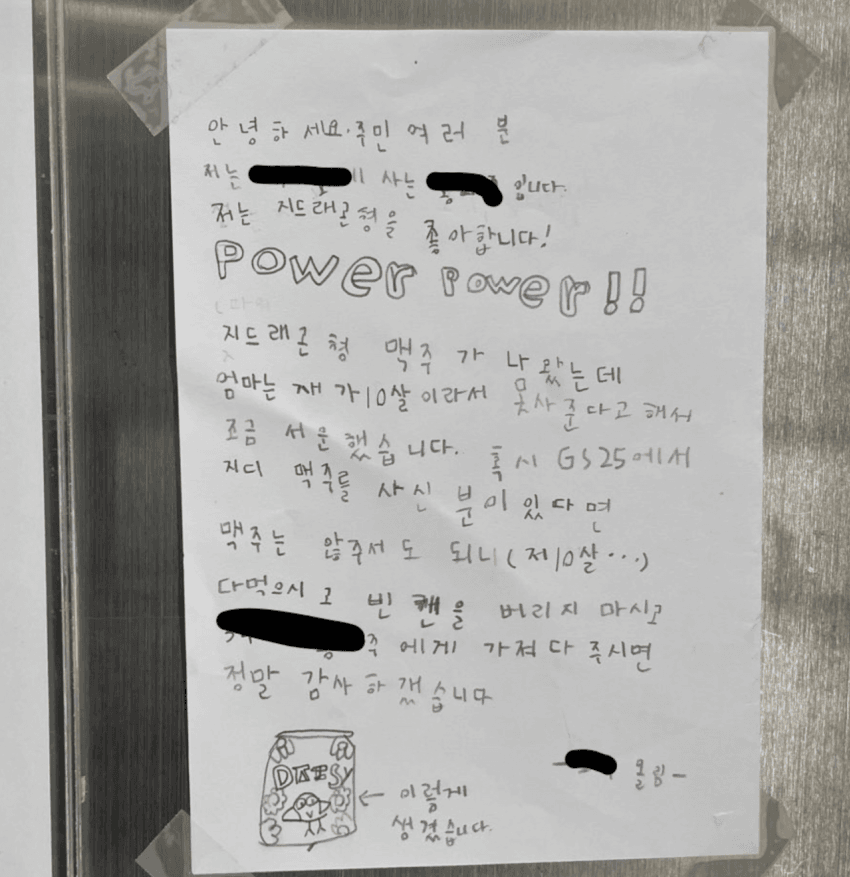 안녕하세요. 주민 여러분
저는 사는 입니다.
저는 지드래곤형을 좋아합니다!
Power Power!!
지드래곤 형 맥주가 나왔는데
엄마는 재가 10살이라서 못사준다고 해서
조금 서운했습니다. 혹시 GS25에서
지디 맥주를 사신 분이 있다면
맥주는 않주서도 되니(제10살...)
다먹으시고 빈 캔을 버리지 마시고
에게 가져다 주시면
정말 감사하겠습니다
올림-
← 이렇게
생겼습니다.